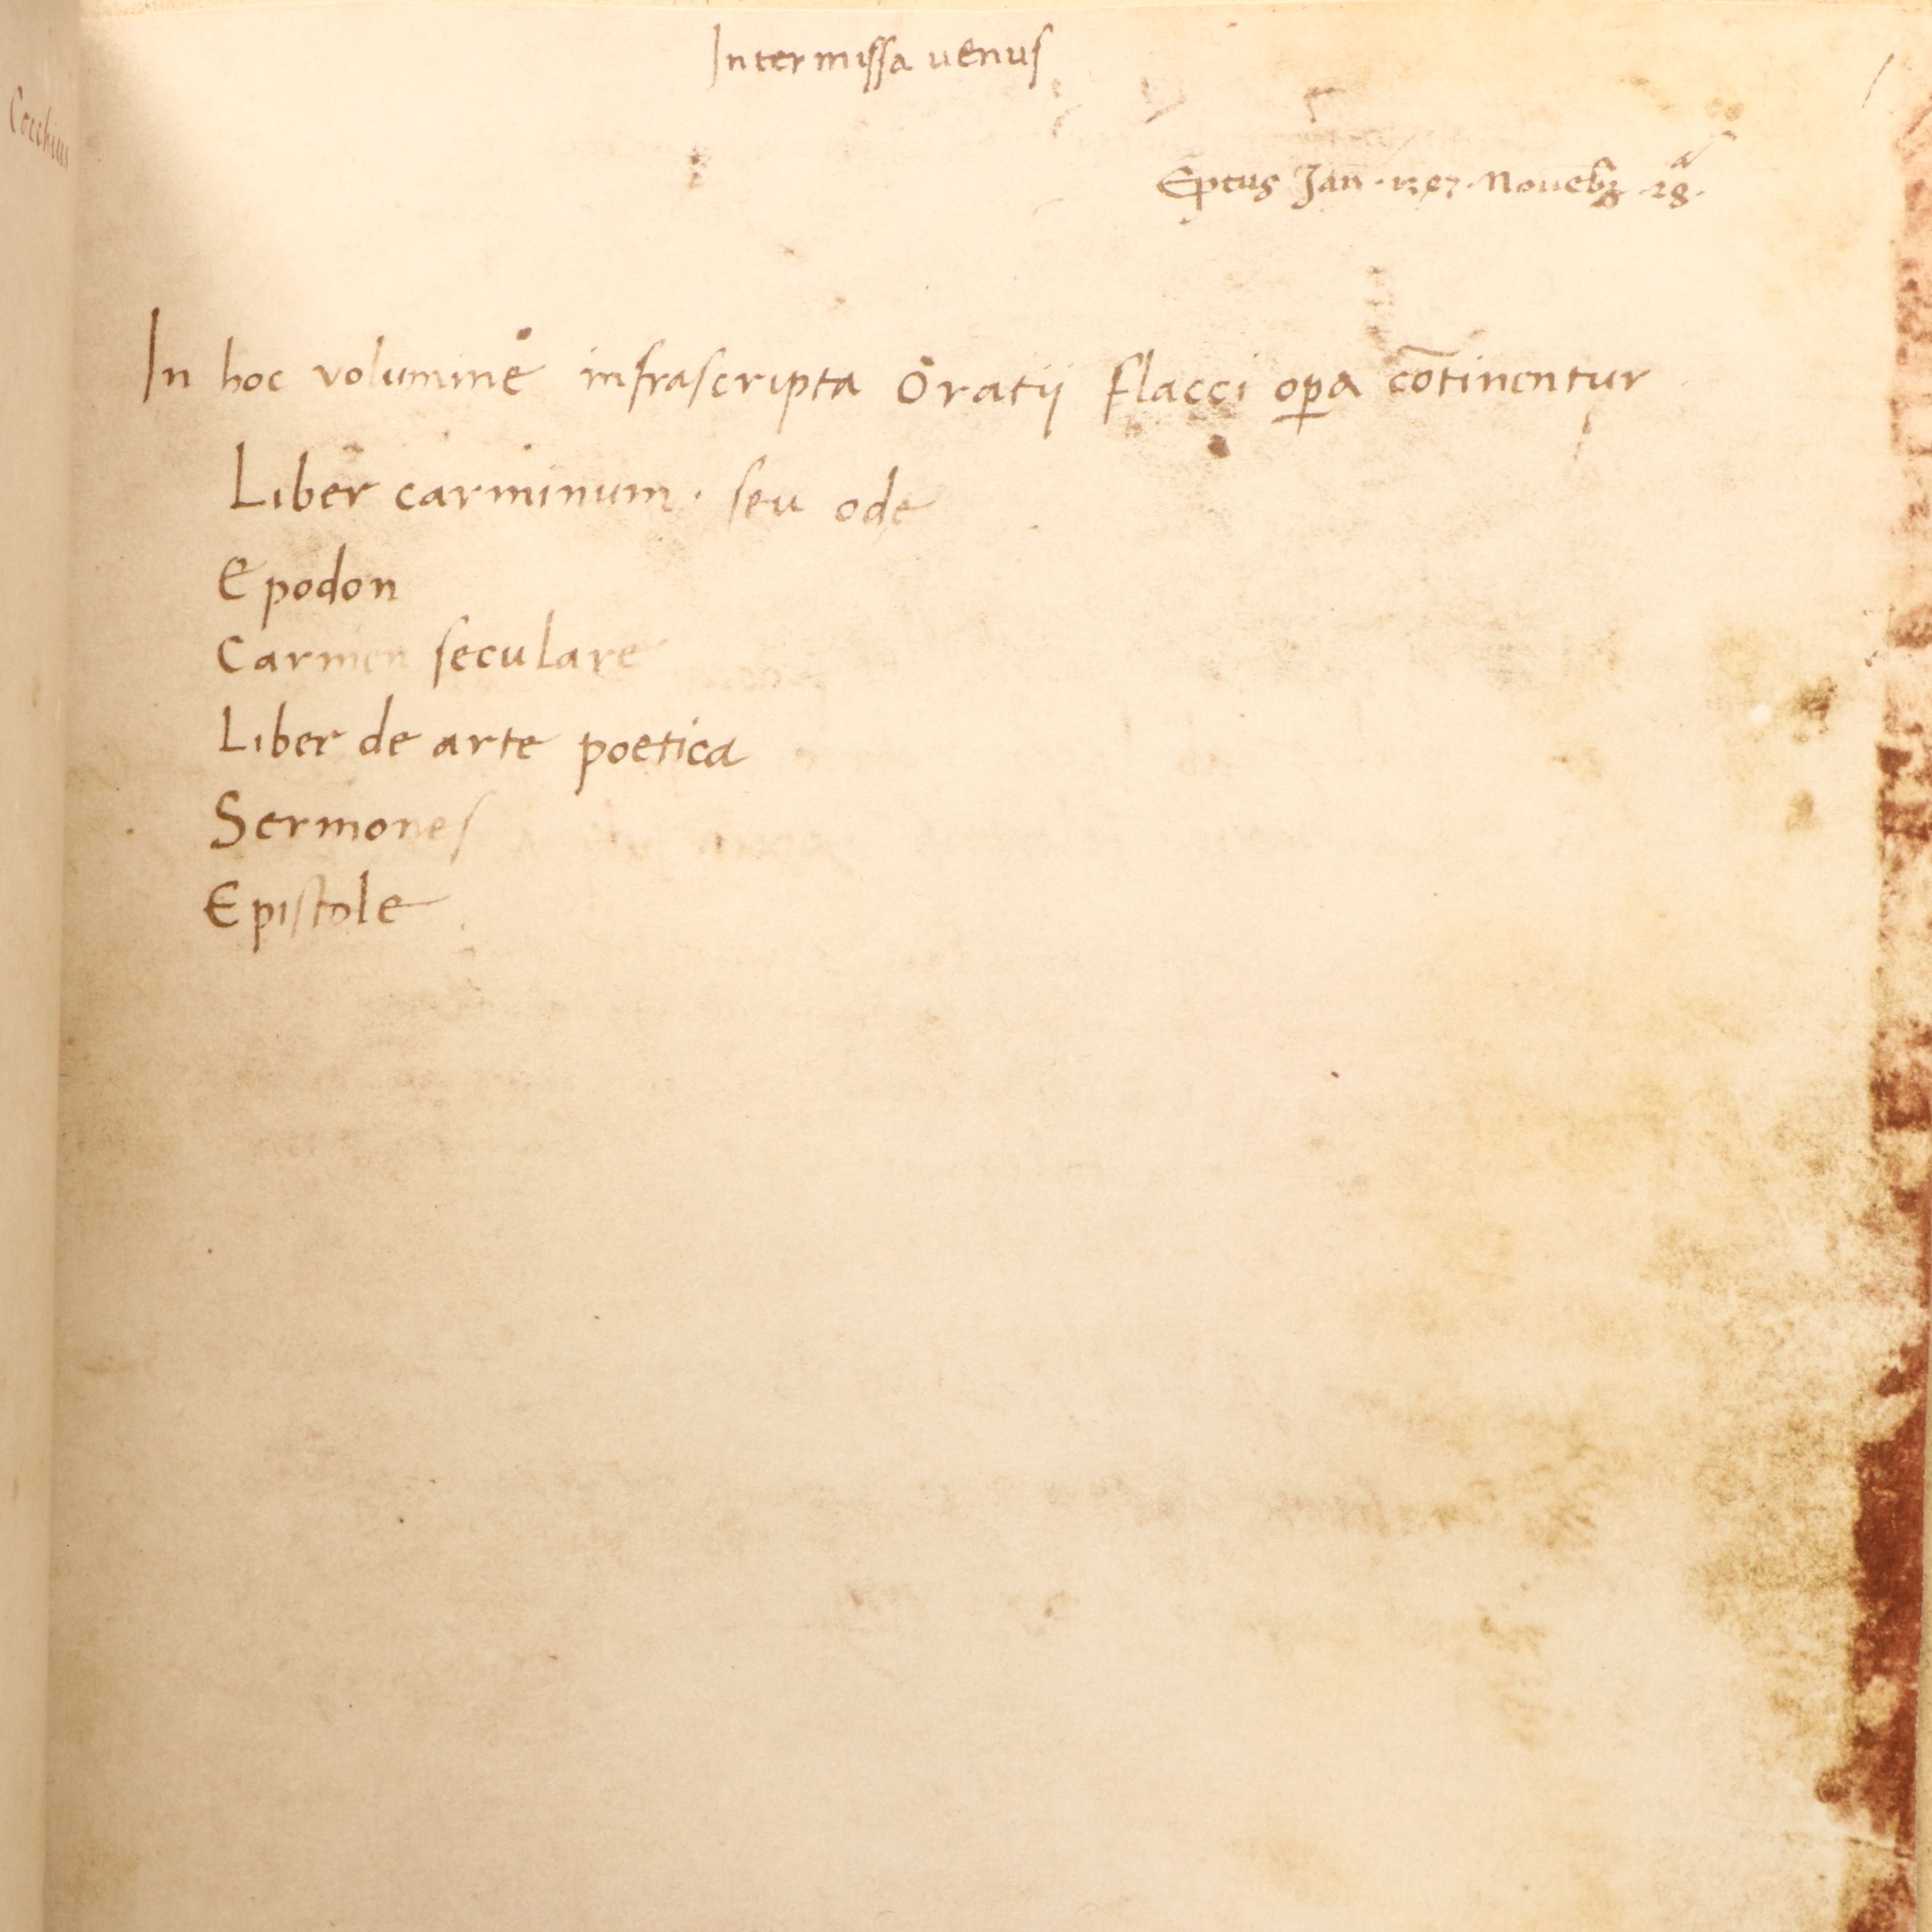 Intermissa uenus
Cocchius
Eptus Jan · 1347 · Nouēbꝫ · 28ᵃ ·
In hoc volumine infrascripta Oratij flacci opa cōtinentur
Liber carminum · seu ode
Epodon
Carmen seculare
Liber de arte poetica
Sermones
Epistole